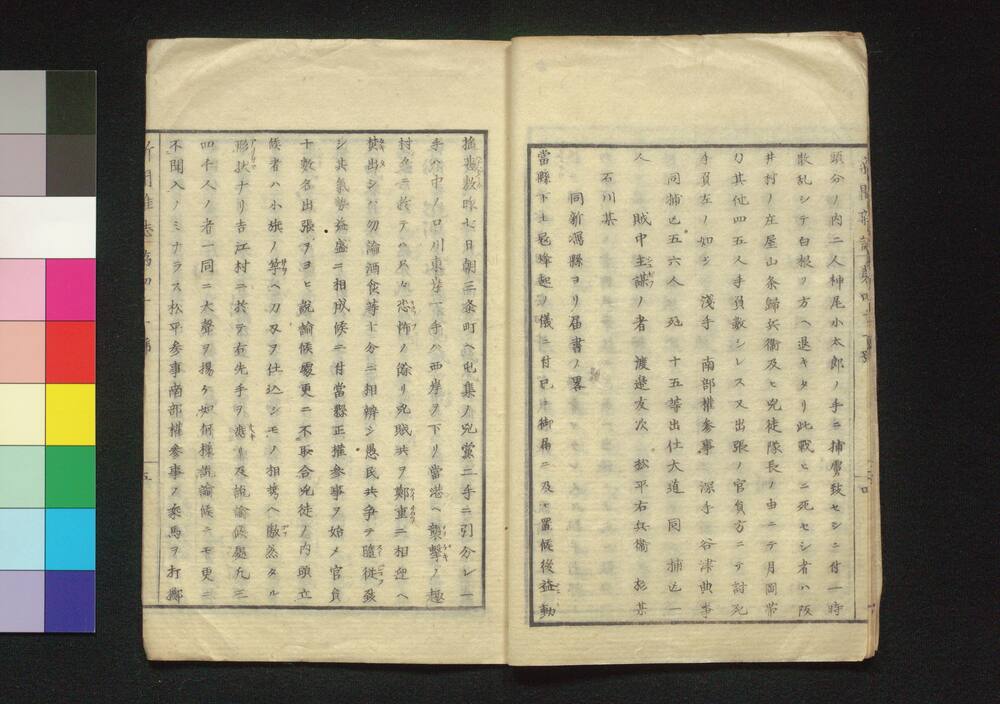 頭分ノ内二人柿尾小太郎ノ手ニ捕虜致セシニ付一時
散乱シテ白根ノ方ヘ退キタリ此戰ヒニ死セシ者ハ阪
井村ノ庄屋山条歸兵衞及ヒ兇徒隊長ノ由ニテ月岡帶
刀其他四五人手負數シレス又出張ノ官負方ニテ討死
手負左ノ如シ 淺手 南部權参事 深手 谷津典事
同捕亡五六人 死 十五等出仕大道 同 捕亡一
人 賊中主謀ノ者 渡邉友次 松平右兵衞 杉某
石川某
同新潟縣ヨリ届書ノ畧
當縣下土冦蜂起ノ儀ニ付已ニ御届ニ及ヒ置候後益動
搖苅敷昨七日朝三条町ヘ屯集ノ兇黨二手ニ引分レ一
手ハ中ノ口川東岸一手ハ西岸ヲ下リ當港ヘ襲撃ノ趣
村鱼ニ於テハ只々恐怖ノ餘リ兇賊共ヲ鄭重ニ相迎ヘ
焚出シハ勿論酒食等十分ニ相辨シ愚民共争テ隨從致
シ其氣勢益盛ニ相成候ニ付當縣正權参事ヲ始メ官負
十數名出張ヲヨヒ説諭候處更ニ不取合兇徒ノ内頭立
候者ハ小旗ノ竿ヘ刀又ヲ仕込シモノ相携ヘ傲然タル
形状ナリ吉江村ニ於テ右先手ヲ遮リ及説諭候處凡三
四千人ノ者一同ニ大聲ヲ揚ケ如何樣説諭候ニモ更ニ
不聞入ノミナラス松平参事南部權参事ノ乘馬ヲ打擲
新聞雜誌第四十一號
五